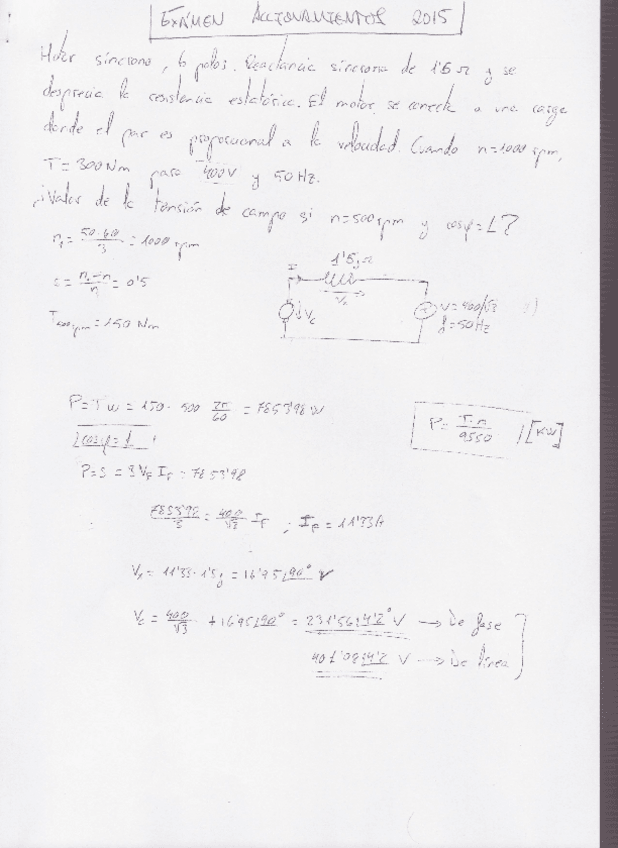 EXAMEN ACCIONAMIENTOS 2015
Motor síncrono, 6 polos. Reactancia síncrona de 1'5 Ω y se
desprecia la resistencia estatórica. El motor se conecta a una carga
donde el par es proporcional a la velocidad. Cuando n=1000 rpm,
T=300Nm para 400V y 50Hz.
¿Valor de la tensión de campo si n=500rpm y cosφ=1?
n₁ = 50·60/3 = 1000 rpm
s = n₁-n/n = 0'5
= 150 Nm
I 1'5j Ω
Vx
Vc
V=400/√3
f=50Hz
P=Tω = 150 · 500 2π/60 = 7853'98 W
P = T·n/9550 [KW]
cosφ=1
P=S = 3 VF IF = 7853'98
7853'98/3 = 400/√3 IF ; IF = 11'33A
Vx = 11'33·1'5j = 16'95∠90° V
Vc = 400/√3 + 16'95∠90° = 231'56∠4'2° V → De fase
401'08∠4'2 V → De línea